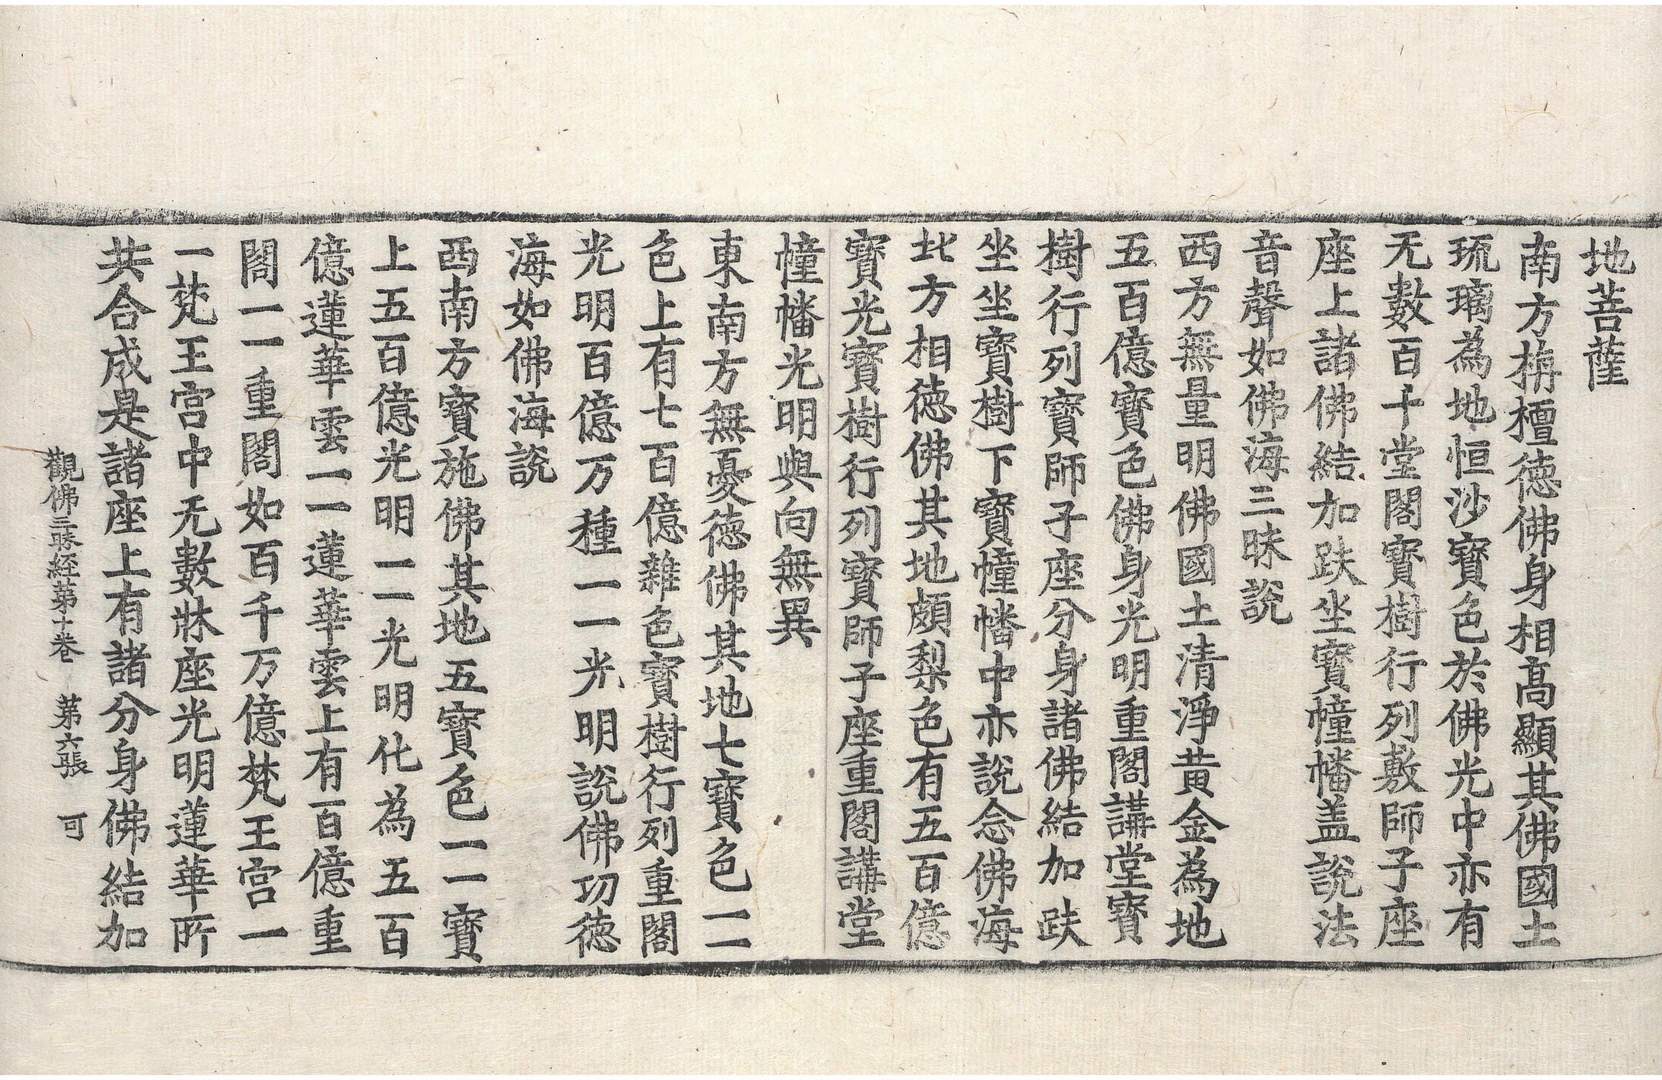 地菩薩
南方栴檀德佛身相高顯其佛國土
琉璃為地恒沙寶色於佛光中亦有
无數百千堂閣寶樹行列敷師子座
座上諸佛結加趺坐寶幢幡盖說法
音聲如佛海三昧說
西方無量明佛國土清淨黃金為地
五百億寶色佛身光明重閣講堂寶
樹行列寶師子座分身諸佛結加趺
坐坐寶樹下寶幢幡中亦說念佛海
北方相德佛其地頗梨色有五百億
寶光寶樹行列寶師子座重閣講堂
幢幡光明與向無異
東南方無憂德佛其地七寶色一一
色上有七百億雜色寶樹行列重閣
光明百億万種一一光明說佛功德
海如佛海說
西南方寶施佛其地五寶色一一寶
上五百億光明一一光明化為五百
億蓮華雲一一蓮華雲上有百億重
閣一一重閣如百千万億梵王宮一
一梵王宮中无數牀座光明蓮華所
共合成是諸座上有諸分身佛結加
觀佛三昧經第十卷 第六張 可